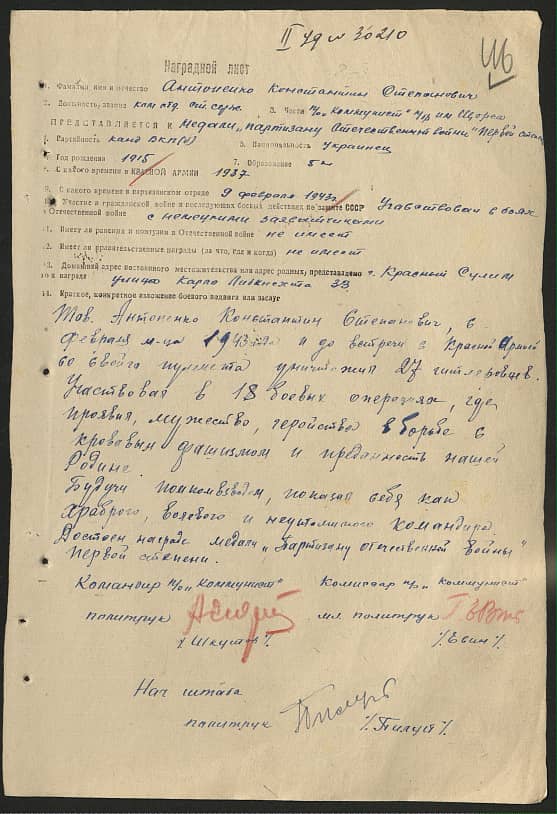 II уд м 30210
Наградной лист
1. Фамилия имя и отчество Антоненко Константин Степанович
2. Должность, звание ком. отд. ст. серж. 3. Части п/о „Коммунист" п/о им Щорса
ПРЕДСТАВЛЯЕТСЯ К медали „партизану Отечественной войны" Первой степ
4. Партийность канд ВКП(б) 5. Национальность Украинец
6. Год рождения 1915 7. Образование 5 кл
8. С какого времени в КРАСНОЙ АРМИИ 1937
9. С какого времени в партизанском отряде 9 февраля 1943г
10. Участие в гражданской войне и последующих боевых действиях по защите СССР Учавствовал в боях
и Отечественной войне с немецкими захватчиками
11. Имеет ли ранения и контузии в Отечественной войне не имеет
12. Имеет ли правительственные награды (за что, где и когда) не имеет
13. Домашний адрес постоянного местожительства или адрес родных, представляемого г. Красный Сулин
к награде улица Карла Либкнехта 33
14. Краткое, конкретное изложение боевого подвига или заслуг
Тов. Антоненко Константин Степанович, с
февраля м-ца 1943 года и до встречи с Красной Армией
со своего пулемета уничтожил 27 гитлеровцев.
Участвовал в 18 боевых операциях, где
проявил, мужество, геройство в борьбе с
кровавым фашизмом и преданность нашей
Родине.
Будучи помкомвзводом, показал себя как
храброго, волевого и неутомимого командира
Достоен награде медали „Партизану отечественной войны"
Первой степени.
Командир п/о „Коммунист" Комиссар п/о „Коммунист"
политрук мл. политрук
/Евин/
Нач штаба
политрук /Пилуй/